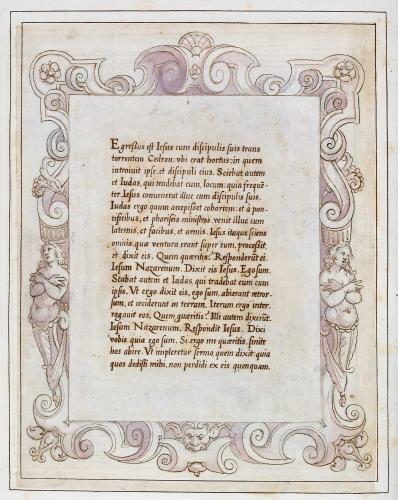 Egreßus est Iesus cum discipulis suis trans
torrentem Cedron: vbi erat hortus: in quem
introiuit ipse, et discipuli eius. Sciebat autem
et Iudas, qui tradebat eum, locum: quia frequē-
ter Iesus conuenerat illuc cum discipulis suis.
Iudas ergo quum accepißet cohortem: et à pon-
tificibus, et phariseis ministros, venit illuc cum
laternis, et facibus, et armis. Iesus itaque sciens
omnia, quæ ventura erant super eum, proceßit,
et dixit eis. Quem quæritis? Responderūt ei.
Iesum Nazarenum. Dixit eis Iesus. Ego sum.
Stabat autem et Iudas, qui tradebat eum cum
ipsis. Vt ergo dixit eis, ego sum, abierunt retror-
sum, et ceciderunt in terram. Iterum ergo inter-
rogauit eos. Quem quæritis? Illi autem dixerūt.
Iesum Nazarenum. Respondit Iesus. Dixi
vobis, quia ego sum. Si ergo me quæritis, sinite
hos abire. Vt impleretur sermo, quem dixit: quia
quos dedisti mihi, non perdidi ex eis quenquam.